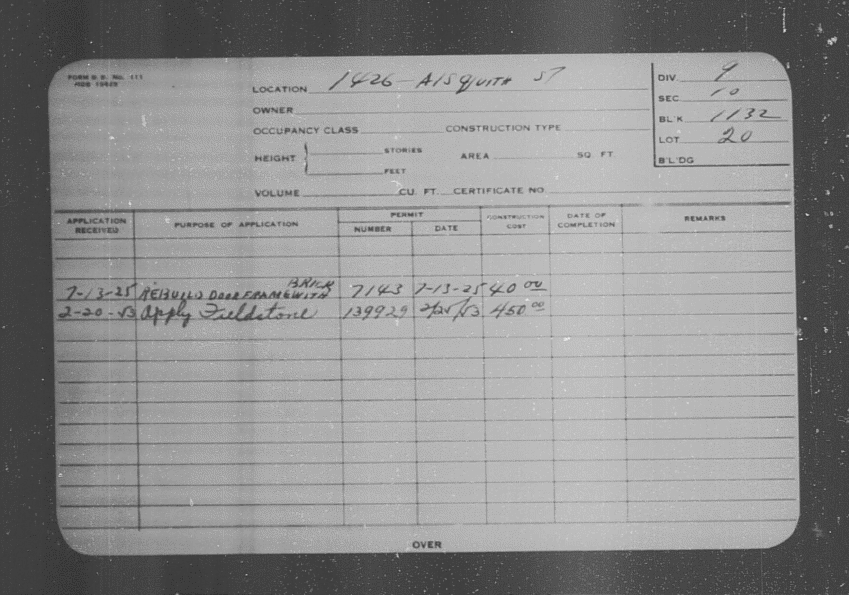 FORM B. B. No. 111
LOCATION 1426 - AISQUITH ST
DIV. 9
SEC 10
OWNER
BL'K 1132
OCCUPANCY CLASS CONSTRUCTION TYPE
LOT 20
HEIGHT { STORIES AREA SQ. FT.
FEET
B'L'DG
VOLUME CU. FT. CERTIFICATE NO.
APPLICATION RECEIVED PURPOSE OF APPLICATION PERMIT NUMBER DATE CONSTRUCTION COST DATE OF COMPLETION REMARKS
BRICK
7-13-25 REBUILD DOOR FRAME WITH 7143 7-13-25 40 00
2-20-53 Apply Fieldstone 139929 2/25/53 450 00
OVER